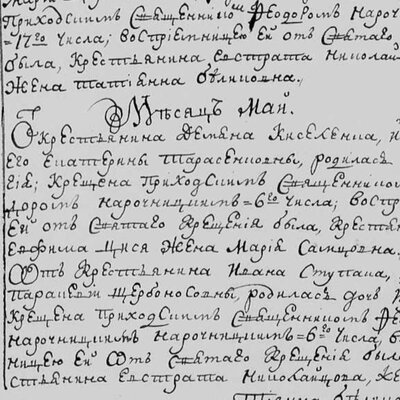 Приходскимъ Священникомъ Ѳеодоромъ Нароч
=17го числа; воспрiемницею ей отъ Святаго
была, крестьянина евстрата николай
жена татiанна
Мѣсяцъ Май.
Ѿ крестьянина демяна киселенка, и
его екатерины тарасенковны, родилась
крещена Приходскимъ Священником
доромъ нарочницкимъ =6го числа; воспр
ей отъ святаго крещенiя была, крестья
евфима жена Марiя
Ѿтъ крестьянина ивана ступака,
параскевы щербоносовны, родилась дочь
крещена Приходскимъ Священникомъ Ѳе
нарочницкимъ =6го числа, в
ницею ей Ѿтъ святаго крещенiя был
стьянина евстрата николайцова, же